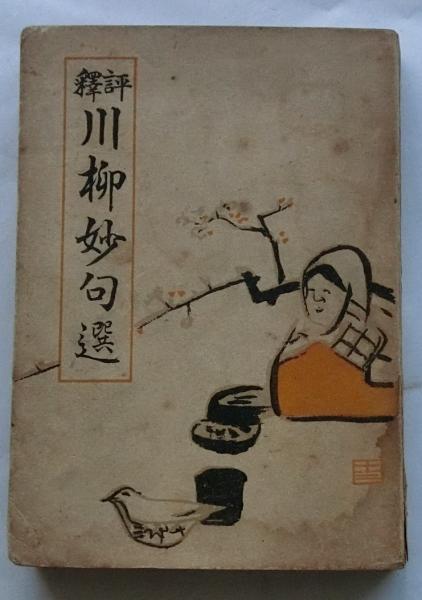 評釋
川柳妙句選